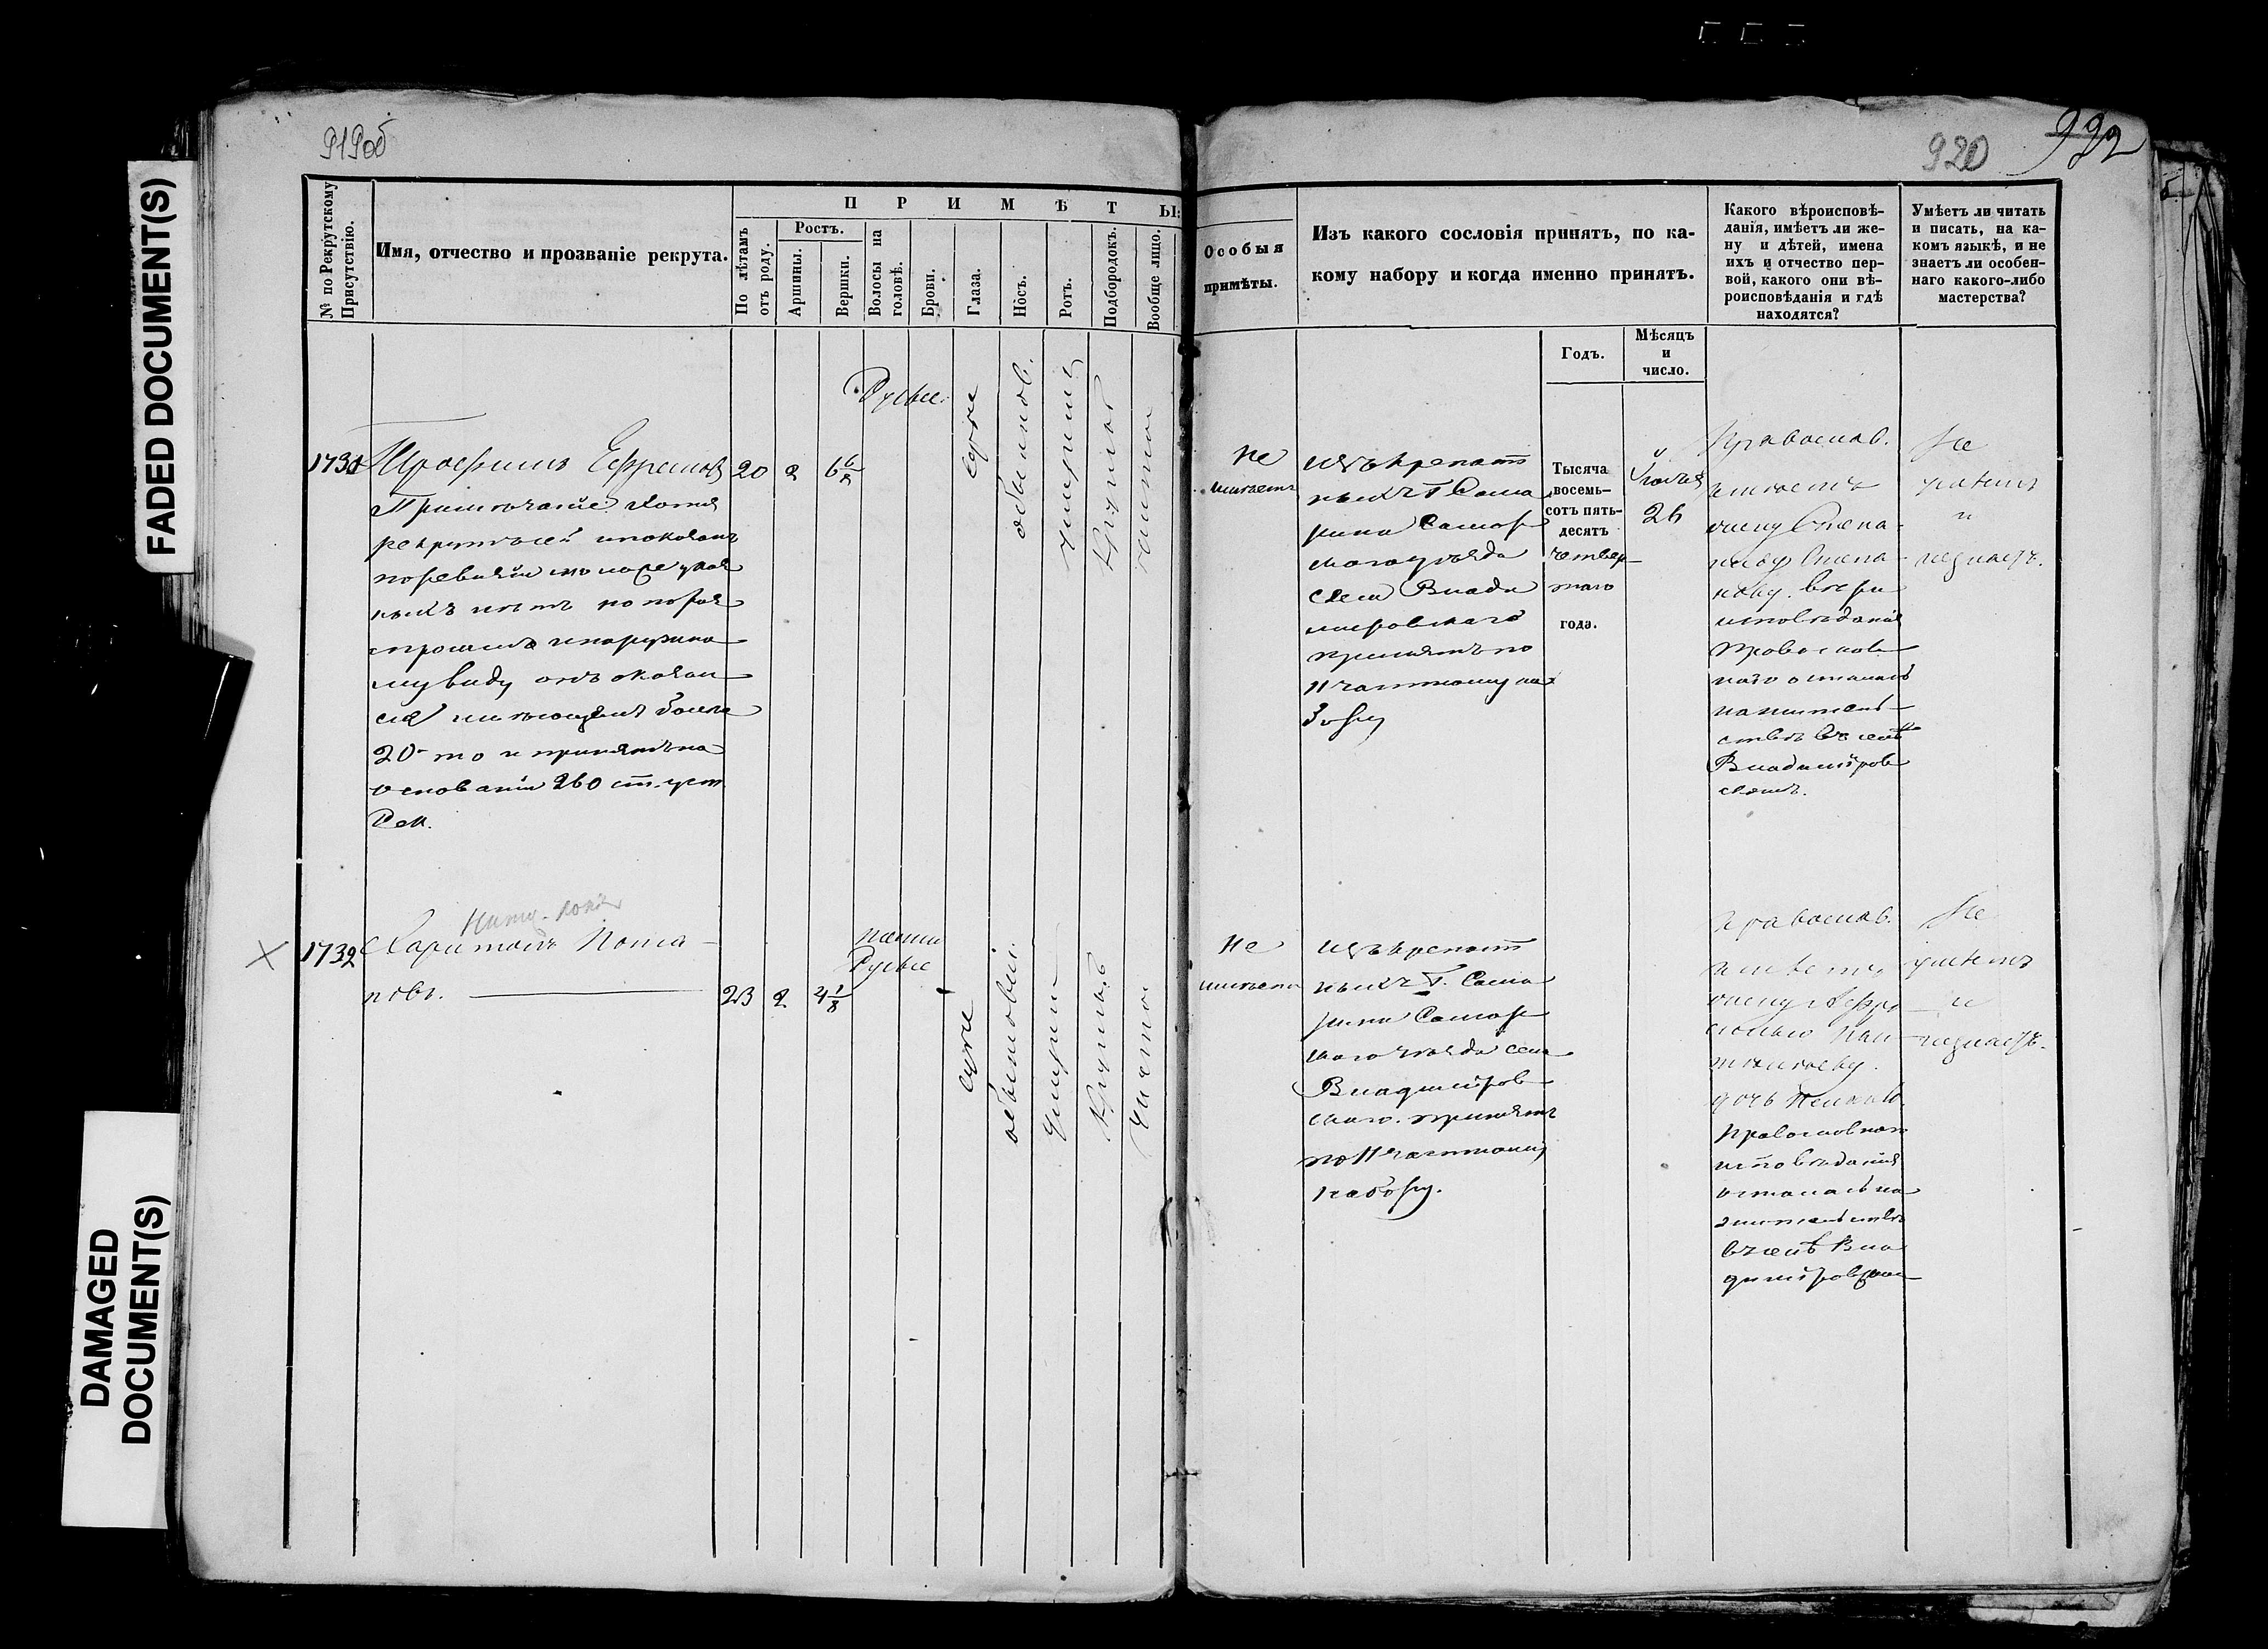 FADED DOCUMENT(S)
DAMAGED
DOCUMENT(S)
919об
920
№ по Рекрутскому
Присутствію.
Имя, отчество и прозваніе рекрута.
П Р И М Ѣ Т Ы:
По лѣтамъ
отъ роду.
Ростъ.
Аршины.
Вершки.
Волосы на
головѣ.
Брови.
Глаза.
Носъ.
Ротъ.
Подбородокъ.
Вообще лицо.
Особыя
примѣты.
Изъ какого сословія принятъ, по ка-
кому набору и когда именно принятъ.
Годъ.
Мѣсяцъ
и
число.
Какого вѣроисповѣ-
данія, имѣетъ ли же-
ну и дѣтей, имена
ихъ и отчество пер-
вой, какого они вѣ-
роисповѣданія и гдѣ
находятся?
Умѣетъ ли читать
и писать, на ка-
комъ языкѣ, и не
знаетъ ли особен-
наго какого-либо
мастерства?
Ефремовъ
Примѣчаніе хотя
рекрутъ сей и показанъ
по ревизіи
нымъ
му виду онъ
ся имѣющимъ болѣе
20-ти и принятъ на
основаніи 260 ст. уст.
Рек.
20
2
6 6/8
Русые
серые
обыкнов.
круглой
чистое
Не
имѣетъ
изъ крепост
ныхъ Г. Сама
рина Самар
скаго уѣзда
села Влади
мировскаго
принятъ по
11 частному на
бору
Тысяча
восемь-
сотъ пять-
десятъ
четвер-
таго
года.
Іюля
26
Православ.
имѣетъ
жену Степа
ниду Степа
нову. вѣры
исповѣданія
Православ
наго осталась
на житель
ствѣ въ селѣ
Владиміров
скомъ.
Не
умѣетъ
и
незнаетъ.
1732
Харитонъ Пота-
повъ.
23
2
4 1/8
Русые
серые
обыкновен.
круглой
чистое
Не
имѣетъ
изъ крепост
ныхъ Г. Сама
рина Самар
скаго уѣзда села
Владиміров
скаго. принятъ
по 11 частному
набору.
Православ.
имѣетъ
жену Аефро
синью Пан
телѣеву.
дочь Пелагею
Православнаго
исповѣданія
остались на
жительствѣ
въ селѣ Вла
диміровском
Не
умѣетъ
и
незнаетъ.